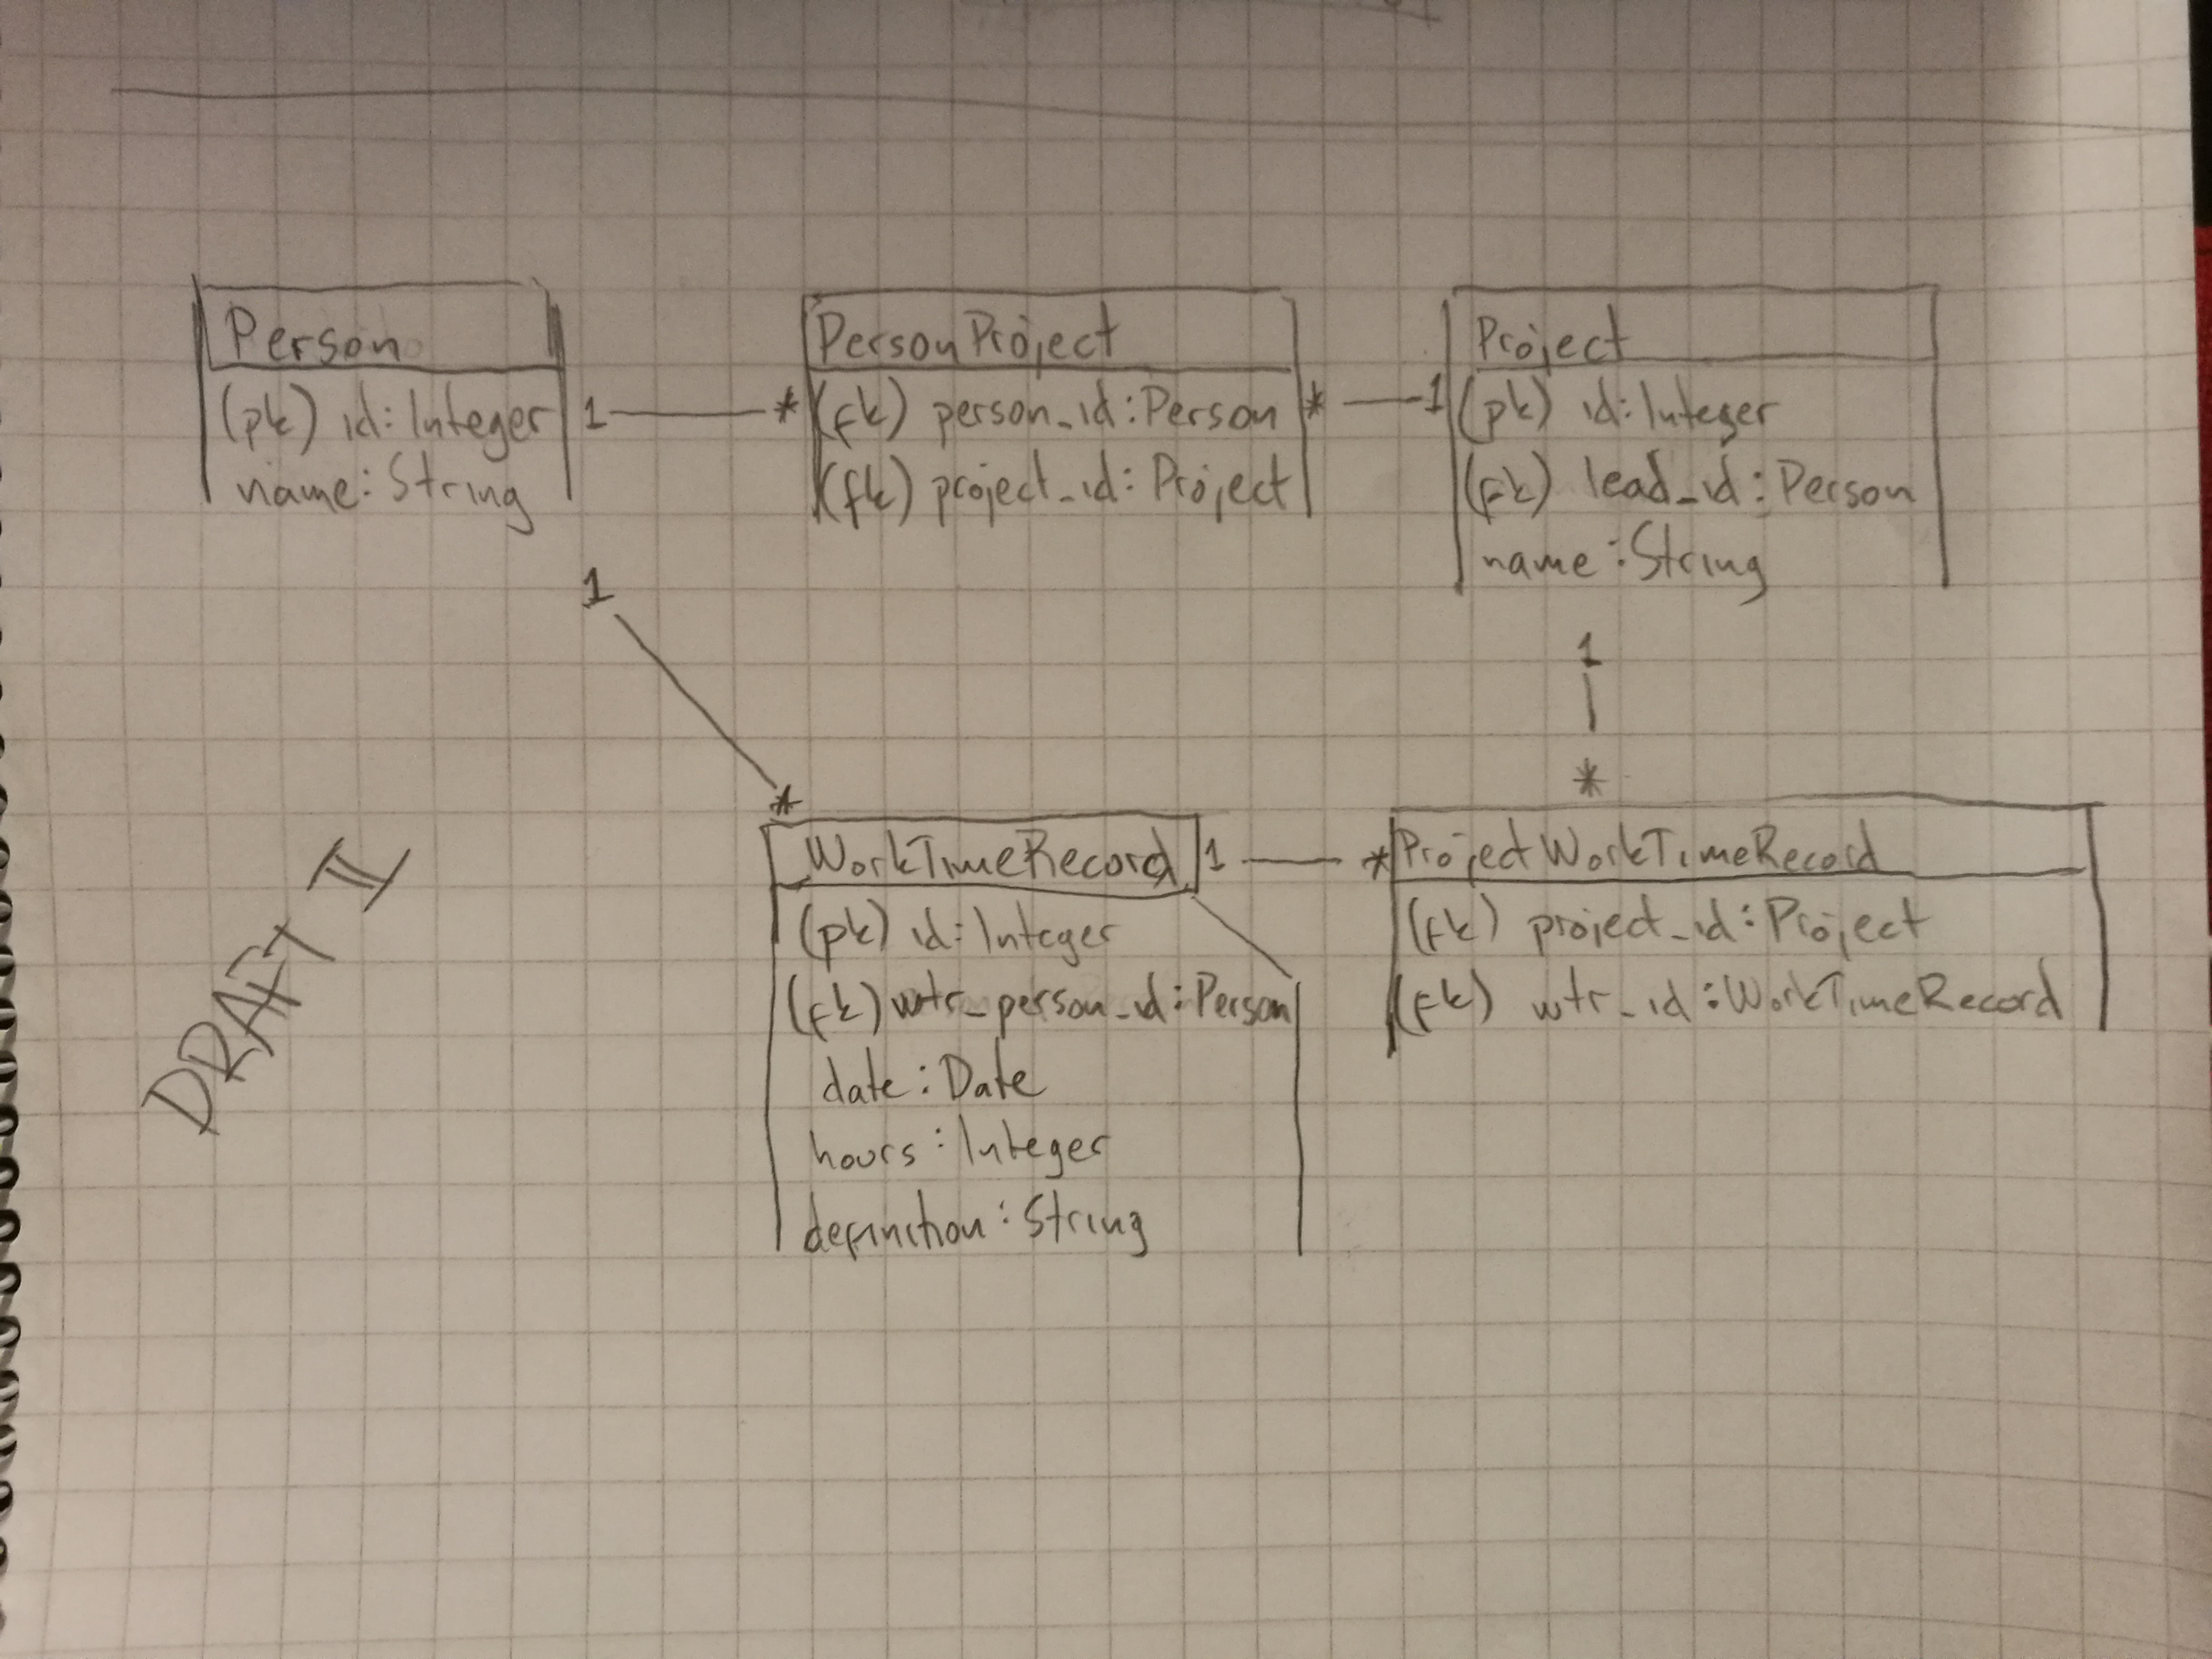 Person
(pk) id: Integer
name: String
1
*
PersonProject
(fk) person_id: Person
(fk) project_id: Project
*
1
Project
(pk) id: Integer
(fk) lead_id: Person
name: String
1
*
1
*
WorkTimeRecord
(pk) id: Integer
(fk) wtr_person_id: Person
date: Date
hours: Integer
definition: String
1
*
ProjectWorkTimeRecord
(fk) project_id: Project
(fk) wtr_id: WorkTimeRecord
DRAFT II